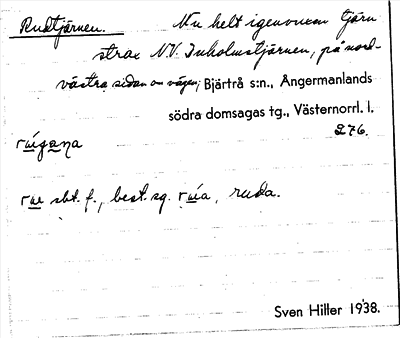 Rudtjärnen. Nu helt igenvuxen tjärn
strax N.V. Inholmstjärnen, på nord-
västra sidan om vägen, Bjärtrå s:n., Ångermanlands
södra domsagas tg., Västernorrl. l.
276.
rue sbt. f., best. sg. ruia, ruda.
Sven Hiller 1938.